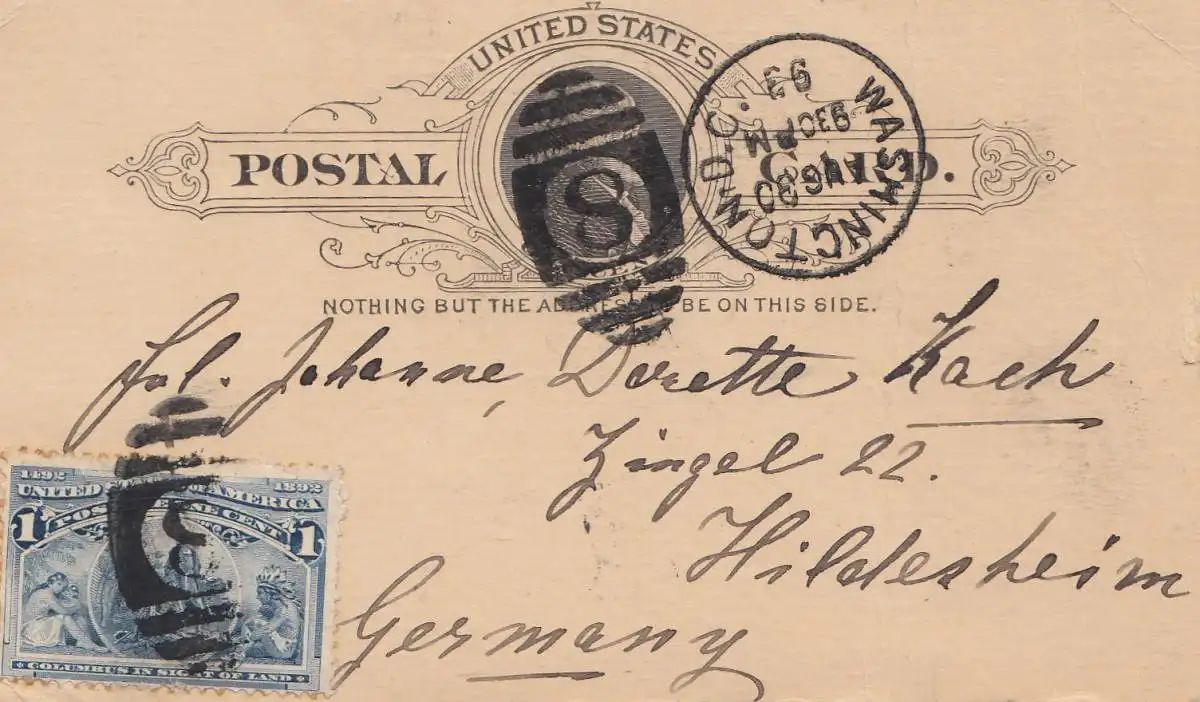 UNITED STATES
POSTAL CARD.
NOTHING BUT THE ADDRESS TO BE ON THIS SIDE.
WASHINGTON, D.C.
AUG 30
930PM
93
8
Frl. Johanne, Dorette Koch
Zingel 22.
Hildesheim
Germany
1492 1892
UNITED STATES OF AMERICA
1 POSTAGE ONE CENT 1
COLUMBUS IN SIGHT OF LAND